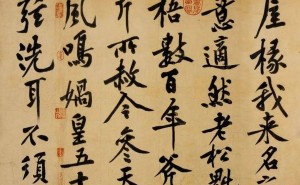 屋椽我来名之
意適然老松魁
梧數百年斧
斤所赦今參天
風鳴媧皇五十
弦洗耳不須